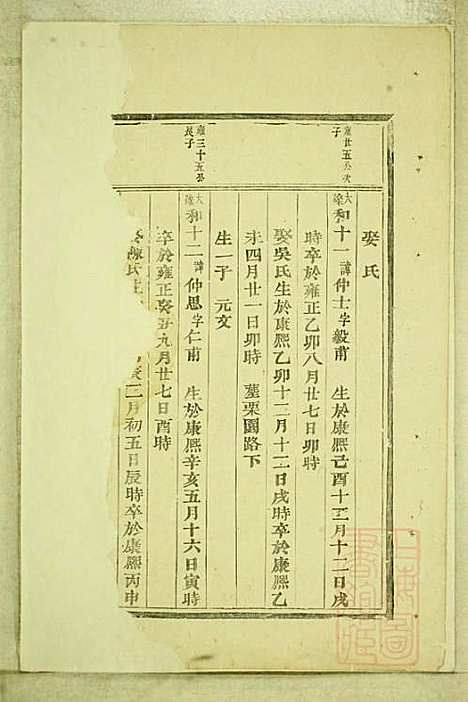 雍廿五公次
子
娶氏
大璇和十一諱仲士字毅甫 生於康熙己酉十二月十二日戌
時卒於雍正乙卯八月廿七日卯時
娶吳氏生於康熙乙卯十二月十二日戌時卒於康熙乙
未四月廿一日卯時 墓栗園路下
生一子 元文
雍三十五公
長子
和十二諱仲思字仁甫 生於康熙辛亥五月十六日寅時
卒於雍正癸丑九月廿七日酉時
氏 二月初五日辰時卒於康熙丙申